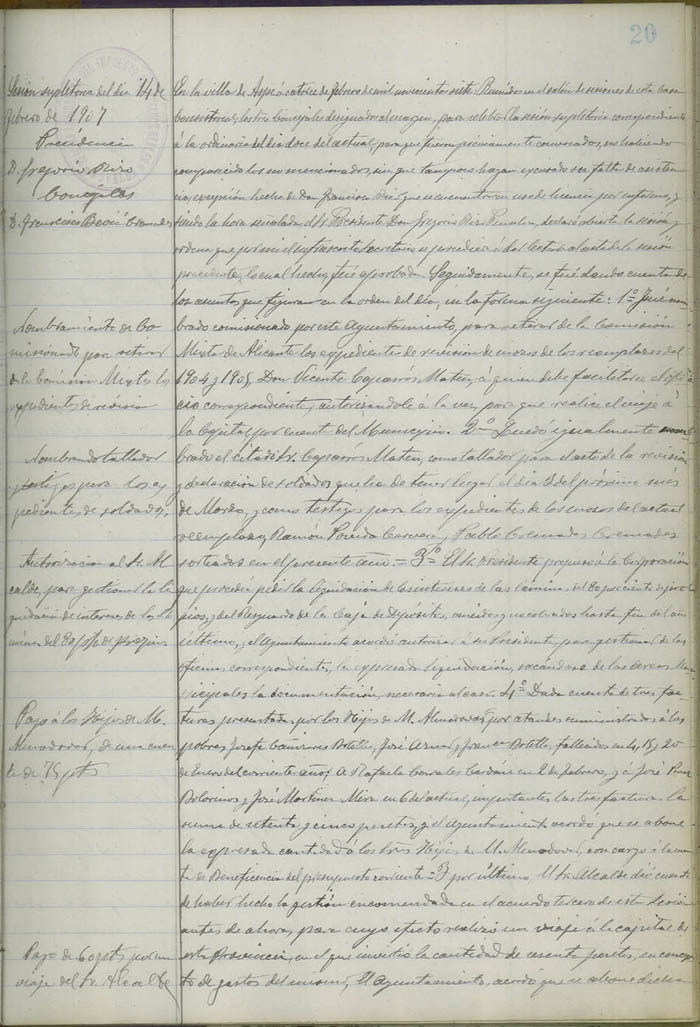 20
Sesión supletoria del dia 14 de
febrero de 1907
Presidencia
D. Gregorio
Concejales
D. Francisco
Nombramiento de Co-
misionado para retirar
de la Comisión Mixta los
expedientes de revisión
Nombrando tallador
y testigos para los ex-
pedientes de soldados
Autorización al Sr. Al-
calde, para gestionar la li-
quidación de intereses de las Lá-
minas del de Propios
Pago á los Hijos de M.
Almodovar, de una cuen-
ta de 75 pts
Pago de 60 pts por un
viaje del Sr. Alcalde
En la villa de Aspe á catorce de febrero de mil novecientos siete: Reunidos en el salón de sesiones de esta Casa
Consistorial, los Sres Concejales designados al margen, para celebrar la sesión supletoria correspondiente
á la ordinaria del dia doce del actual, para que fueron previamente convocados, no habiendo
comparecido los no mencionados, sin que tampoco hayan excusado su falta de asisten-
cia, excepción hecha de Don Francisco que se encuentra en uso de licencia por enfermo, y
siendo la hora señalada, el Sr. Presidente Don Gregorio declaró abierta la sesión, y
ordenó que por mi el infrascrito Secretario se procediera á dar lectura al acta de la sesión
precedente, lo cual hecho, fué aprobada. Seguidamente, se fué dando cuenta de
los asuntos que figuran en la orden del dia, en la forma siguiente: 1º Fué nom-
brado comisionado por este Ayuntamiento, para retirar de la Comisión
Mixta de Alicante los expedientes de revisión de mozos de los reemplazos del
1904 y 1905 Don Vicente Caparrós Mateu, á quien debe facilitarse el ofi-
cio correspondiente, autorizandole á la vez, para que realice el viaje á
la Capital por cuenta del Municipio. 2º Quedó igualmente nom-
brado el citado Sr. Caparrós Mateu, como tallador para el acto de la revisión
y declaración de soldados que ha de tener lugar el dia del próximo mes
de Marzo, y como testigos para los expedientes de los mozos del actual
reemplazo, Ramón Cervera, y Pablo Cremades Cremades
sorteados en el presente año = 3º El Sr. Presidente propuso á la Corporación
que procedia pedir la liquidación de los intereses de las láminas del de pro-
pios, y del Resguardo de la Caja de Depósitos, vencidos y no cobrados hasta fin del año
último, y el Ayuntamiento acordó autorizar á su Presidente, para gestionar de las
oficinas correspondientes, la expresada liquidación, sacándose de las arcas Mu-
nicipales la documentación necesaria al caso. 4º Dada cuenta de tres fac-
turas presentadas por los Hijos de M. Almodovar, por ataudes suministrados á los
pobres Josefa Cañizares Botella, José Aznar, y Franco Botella, fallecidos en 4, 15 y 20
de Enero del corriente año, á Rafaela Corrales en 2 de febrero, y á José Perez
y José Martinez Mira en 6 del actual, importantes las tres facturas la
suma de setenta y cinco pesetas, y el Ayuntamiento acordó que se abone
la expresada cantidad á los Sres Hijos de M. Almodovar, con cargo á la cuen-
ta de Beneficencia del presupuesto corriente = Y por último, El Sr. Alcalde dió cuenta
de haber hecho la gestión encomendada en el acuerdo tercero de esta sesión
antes de ahora, para cuyo efecto realizó un viaje á la capital de
esta Provincia, en el que invirtió la cantidad de sesenta pesetas, en concep-
to de gastos del mismo, El Ayuntamiento, acordó que se abone dicha